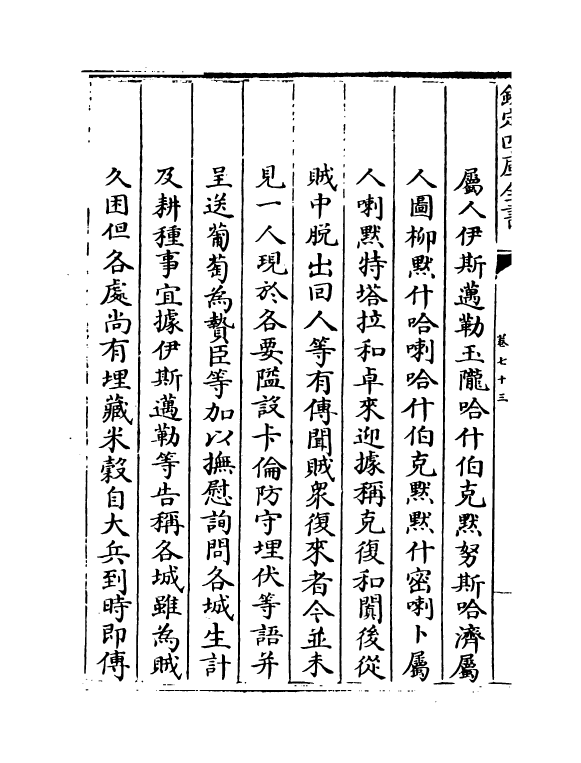 欽定四庫全書
卷七十三
屬人伊斯邁勒玉隴哈什伯克黙努斯哈濟屬
人圖柳黙什哈喇哈什伯克黙黙什密喇卜屬
人喇黙特塔拉和卓來迎據稱克復和闐後從
賊中脫出回人等有傳聞賊衆復來者今並未
見一人現於各要隘設卡倫防守埋伏等語并
呈送葡萄為贄臣等加以撫慰詢問各城生計
及耕種事宜據伊斯邁勒等告稱各城雖為賊
久困但各處尚有埋藏米穀自大兵到時即傳